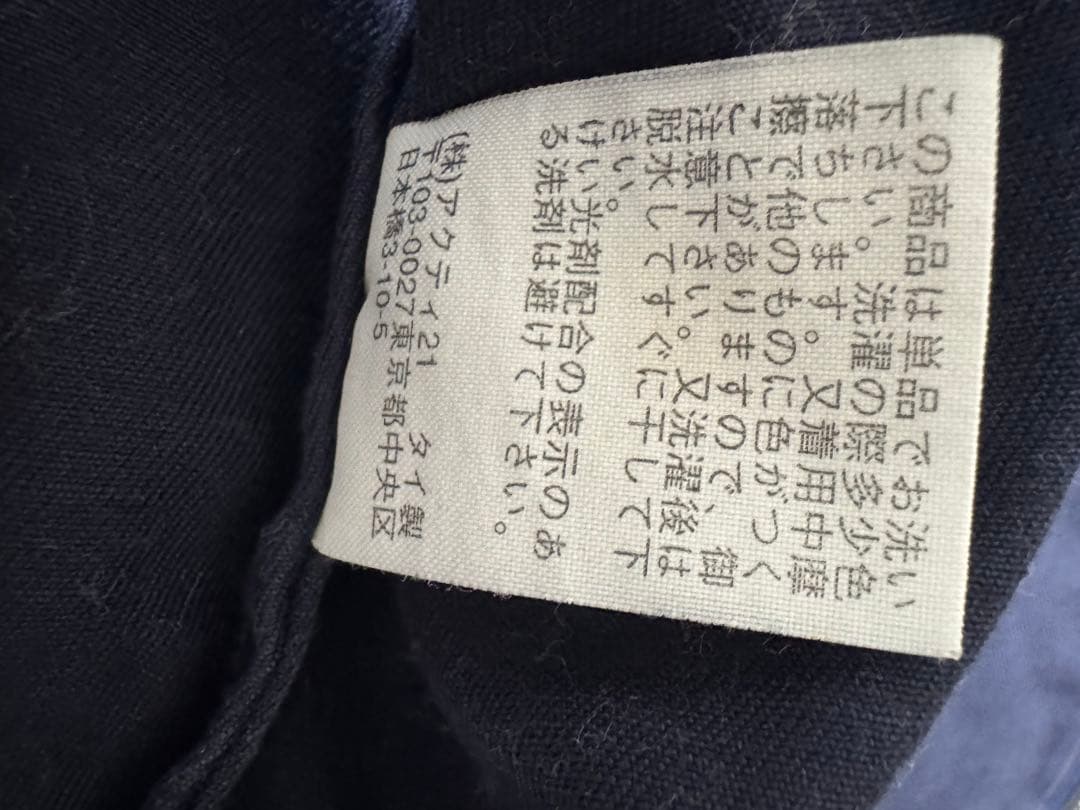 この商品は単品でお洗い
下さい。洗濯の際多少色
落ちします。又着用中摩
擦で他のものに色がつく
ことがありますので、御
注意下さい。又洗濯後は
脱水してすぐに干して下
さい。光剤配合の表示のあ
ける洗剤は避けて下さい。
(株)アクティ21 タイ製
〒103-0027東京都中央区
日本橋3-10-5